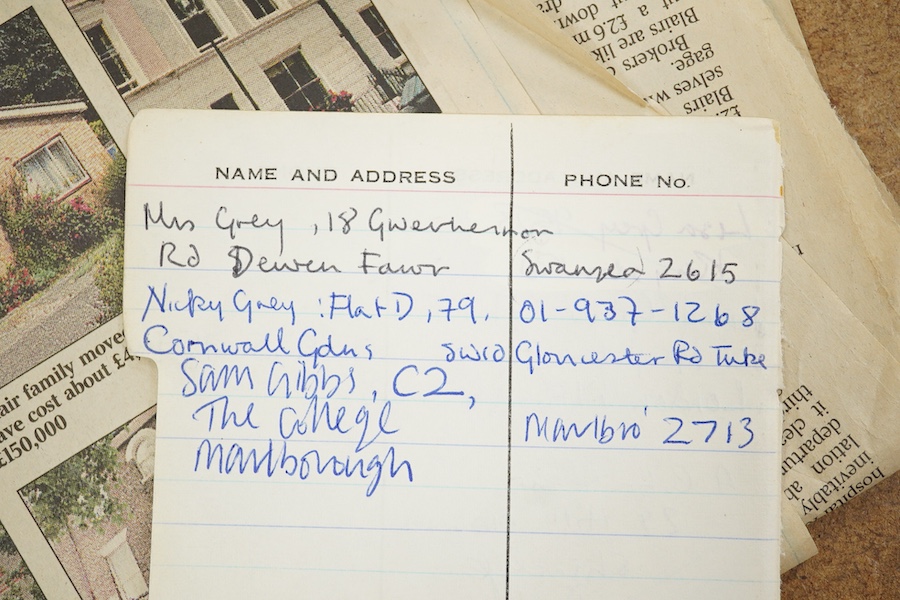 NAME AND ADDRESS
PHONE No.
Mrs Grey, 18 Gwerhernon
Rd Derwen Fawr Swansea 2615
Nicky Grey : Flat D, 79, 01-937-1268
Cornwall Gdns SW10 Gloucester Rd Tube
Sam Gibbs, C2,
The College
Marlbro' 2713
Marlborough
air family move
ave cost about £4
£150,000
ut down
t a £2.6m
Blairs are lik
Brokers
gage.
selves w
Blairs
£2.
it cle
departur
lation ab
inevitably
hospita